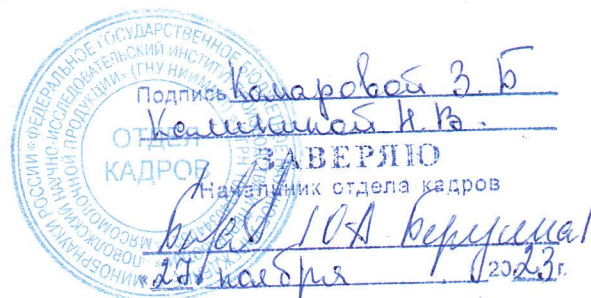 МИНОБРНАУКИ РОССИИ • ФЕДЕРАЛЬНОЕ ГОСУДАРСТВЕННОЕ
ПОВОЛЖСКИЙ НАУЧНО-ИССЛЕДОВАТЕЛЬСКИЙ ИНСТИТУТ
МЯСОМОЛОЧНОЙ ПРОДУКЦИИ» (ГНУ НИИММП)
ОТДЕЛ
КАДРОВ
Подпись Комаровой З. Б
Калининой Н.В.
ЗАВЕРЯЮ
Начальник отдела кадров
Ю А
«27» ноября 2023г.